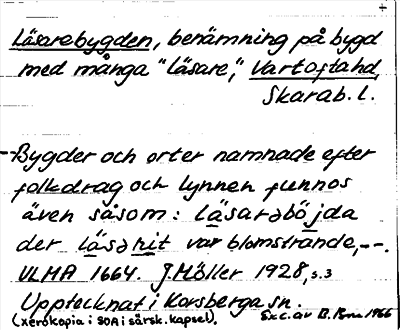 Läsarebygden, benämning på bygd
med många "läsare", Vartoftahd,
Skarab. l.
Bygder och orter namnade efter
folkdrag och lynnen funnos
även såsom: läsarəböjda
der läsərit var blomstrande,--.
ULMA 1664. J. Möller 1928, s.3
Upptecknat i Korsberga sn.
(xerokopia i SOA i särsk. kapsel). Exc. av B. 1966